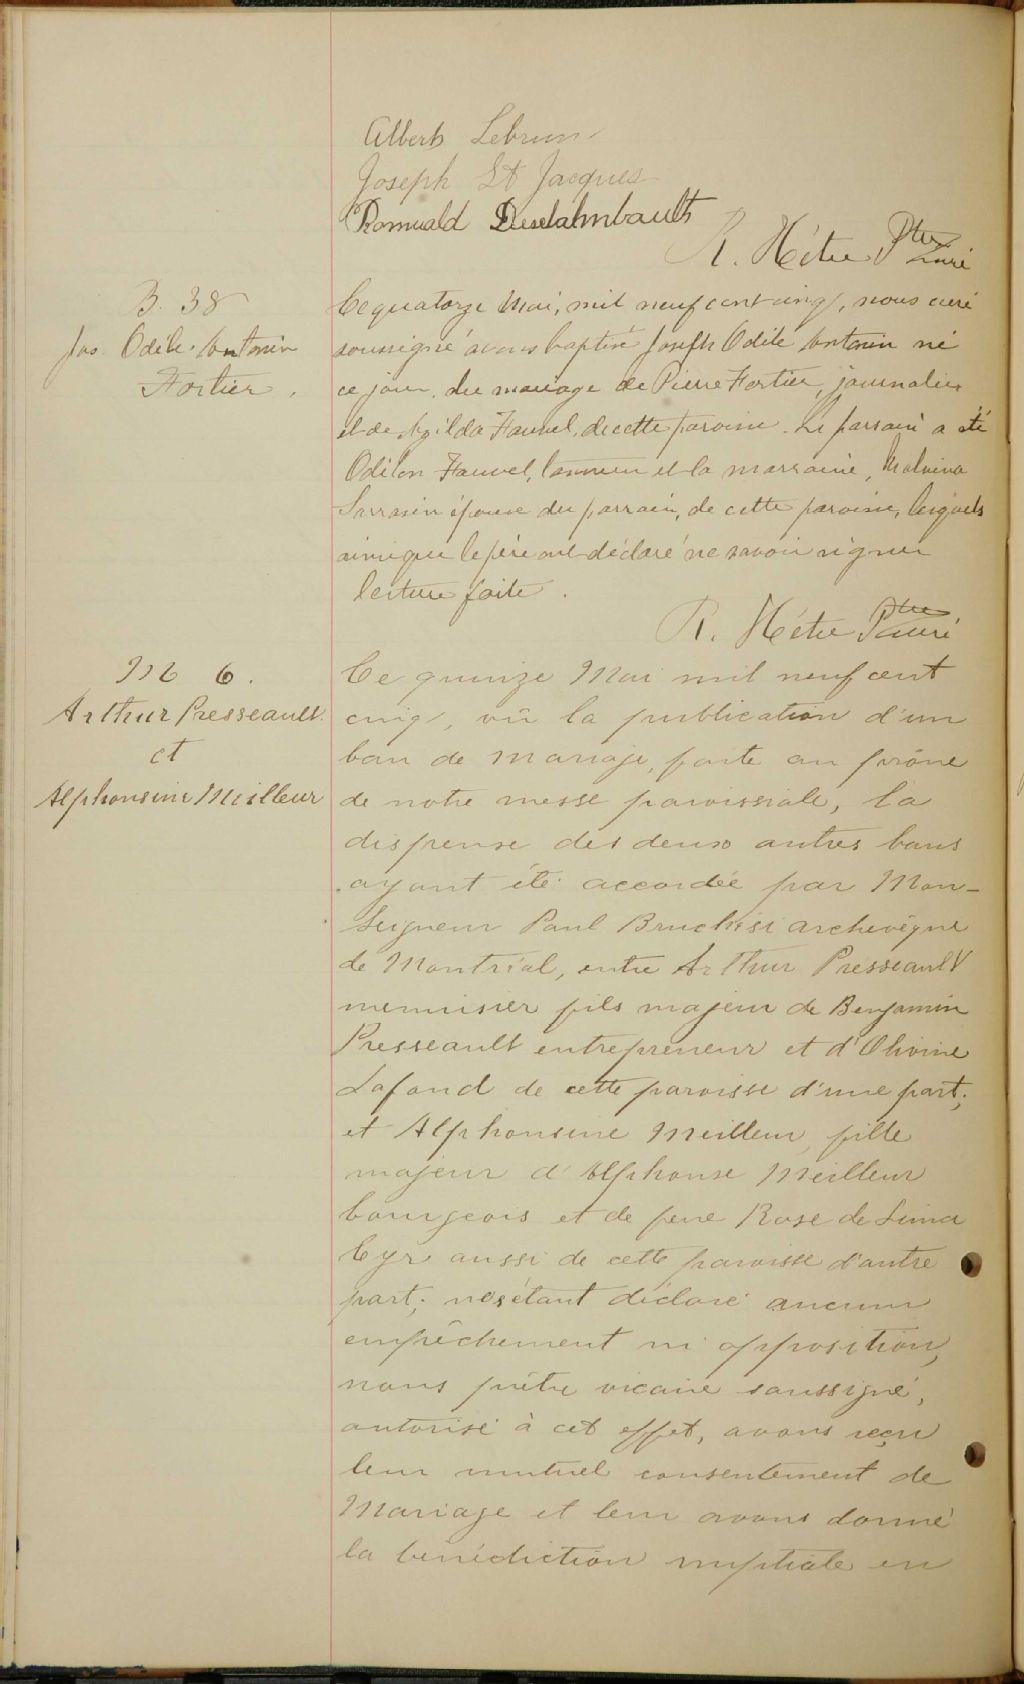 Albert Lebrun
Joseph St Jacques
Romuald
R. Hétu Ptre Curé
B. 38
Jos. Odile Antonin
Fortier.
Ce quatorze Mai, mil neuf cent cinq, nous curé
soussigné avons baptisé Joseph Odile Antonin né
ce jour, du mariage de Pierre Fortier, journalier
et de Exilda Fauvel, de cette paroisse. Le parrain a été
Odilon Fauvel, et la marraine, Malvina
Sarrasin épouse du parrain, de cette paroisse, lesquels
ainsi que le père ont déclaré ne savoir signer
lecture faite.
R. Hétu Ptre Curé
M 6.
Arthur Presseault
et
Alphonsine Meilleur
Ce quinze Mai mil neuf cent
cinq, vû la publication d'un
ban de mariage, faite au prône
de notre messe paroissiale, la
dispense des deux autres bans
ayant été accordée par Mon-
seigneur Paul Bruchési archevêque
de Montréal, entre Arthur Presseault
menuisier fils majeur de Benjamin
Presseault entrepreneur et d'Olivine
Lafond de cette paroisse d'une part;
et Alphonsine Meilleur, fille
majeur d'Alphonse Meilleur
bourgeois et de feue Rose de Lima
Cyr aussi de cette paroisse d'autre
part; ne s'étant déclaré aucun
empêchement ni opposition,
nous prêtre vicaire soussigné,
autorisé à cet effet, avons reçu
leur mutuel consentement de
Mariage et leur avons donné
la bénédiction nuptiale en